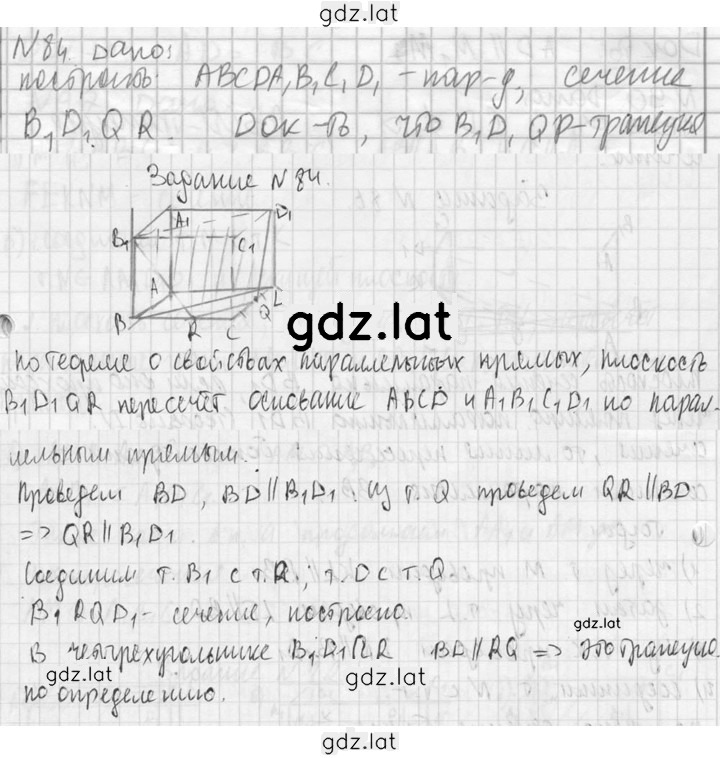 gdz.lat
N 84. Дано:
построить: ABCDA₁B₁C₁D₁ – пар-д, сечение
B₁D₁QR. Док-ть, что B₁D₁QR-трапеция
Задание N 84.
A₁ D₁
B₁ C₁
A L
B R C Q
gdz.lat
по теореме о свойствах параллельных прямых, плоскость
B₁D₁QR пересечёт основание ABCD и A₁B₁C₁D₁ по парал-
лельным прямым.
Проведем BD, BD ∥ B₁D₁. Из т. Q проведем QR ∥ BD
=> QR ∥ B₁D₁
Соединим т. B₁ с т. R, т. D с т. Q
B₁RQD₁ – сечение, построено.
gdz.lat
В четырехугольнике B₁D₁ПR BD ∥ RQ => это трапеция.
по определению.
gdz.lat
gdz.lat